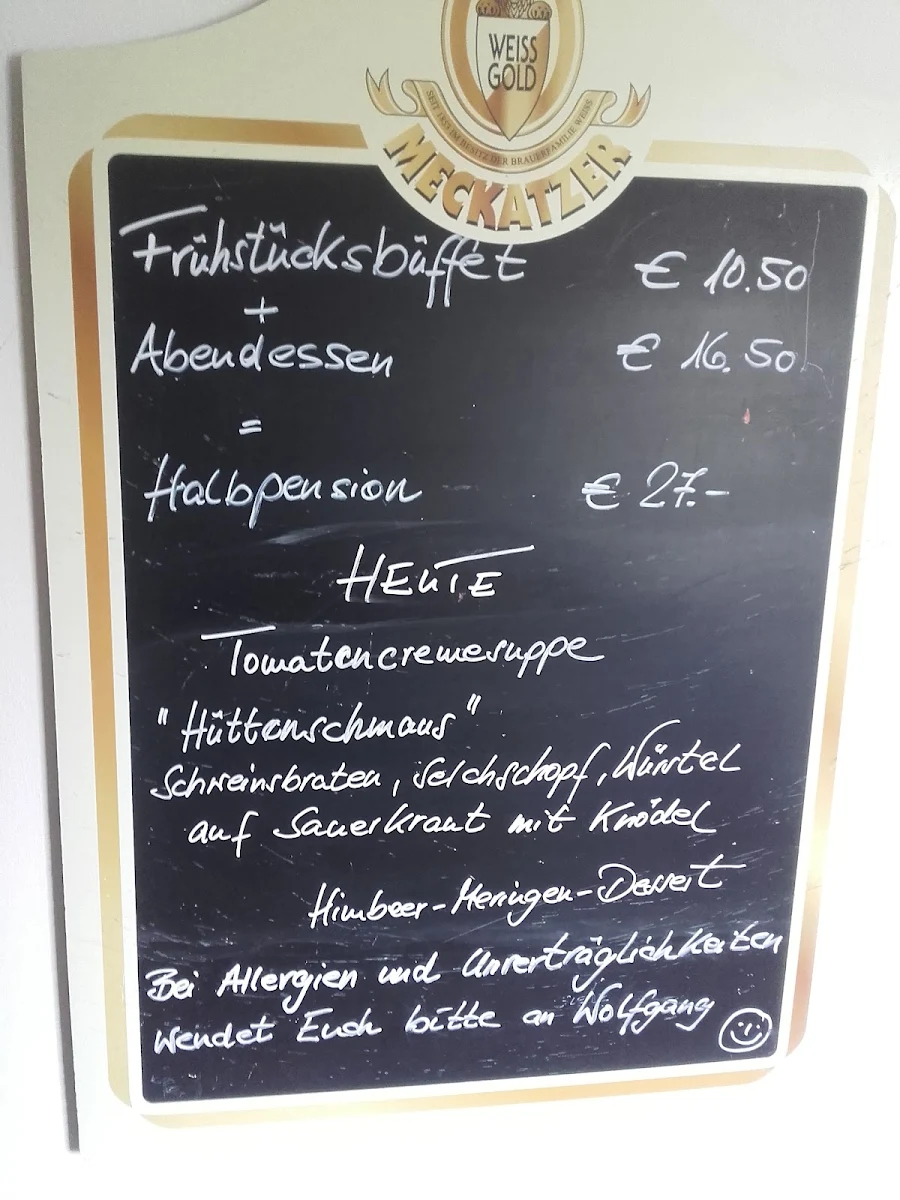 WEISS
GOLD
SEIT 1853 IM BESITZ DER BRAUERFAMILIE WEISS
MECKATZER
Frühstücksbüffet € 10.50
+
Abendessen € 16.50
=
Halbpension € 27.-
HEUTE
Tomatencremesuppe
"Hüttenschmaus"
Schweinsbraten, Selchschopf, Würstel
auf Sauerkraut mit Knödel
Himbeer-Meringen-Dessert
Bei Allergien und Unverträglichkeiten
wendet Euch bitte an Wolfgang